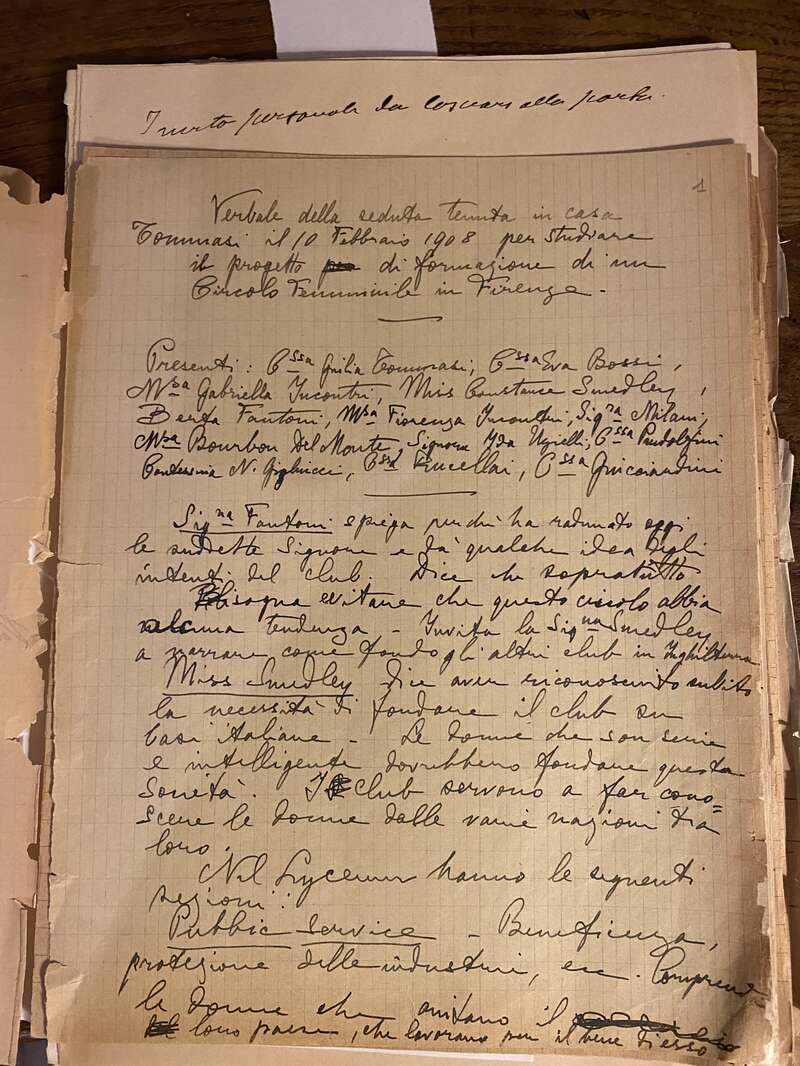 personale da lasciarsi alla
1
Verbale della seduta tenuta in casa
Tommasi il 10 Febbraio 1908 per studiare
il progetto di formazione di un
Circolo Femminile in Firenze -
Presenti : C.ssa Giulia Tommasi, C.ssa Eva Bossi,
M.sa Gabriella Incontri, Miss Constance Smedley,
Berta Fantoni, M.sa Fiorenza Incontri, Sig.ra Milani,
M.sa Bourbon Del Monte, Signora Ida Uzielli, C.ssa Pandolfini
Contessina N. Gigliucci, C.ssa Rucellai, C.ssa Guicciardini
Sig.na Fantoni spiega perchè ha radunato oggi
le suddette Signore e dà qualche idea degli
intenti del club. Dice che sopratutto
bisogna evitare che questo circolo abbia
alcuna tendenza - Invita la Sig.na Smedley
a narrare come fondò gli altri club in Inghilterra
Miss Smedley dice aver riconosciuto subito
la necessità di fondare il club su
basi italiane - Le donne che son serie
e intelligente dovrebbero fondare questa
Società. I club servono a far cono=
scere le donne delle varie nazioni tra
loro.
Nel Lyceum hanno le seguenti
sezioni :
Public Service - Beneficenza,
protezione delle industrie, ecc. Comprende
le donne che aiutano il
loro paese, che lavorano per il bene di esso